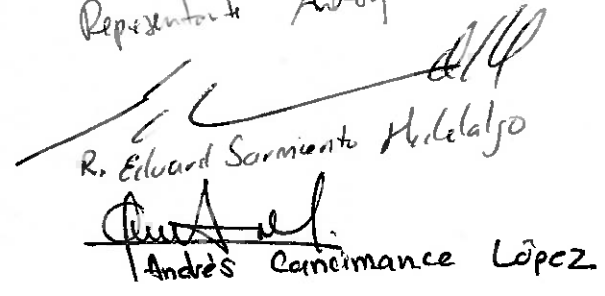 Representante
R. Eduard Sarmiento Hidalgo
Andrés Cancimance López